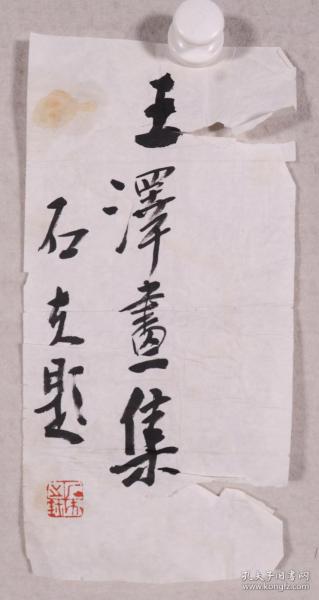 王澤畫集
石克題
孔夫子旧书网
www.kongfz.com